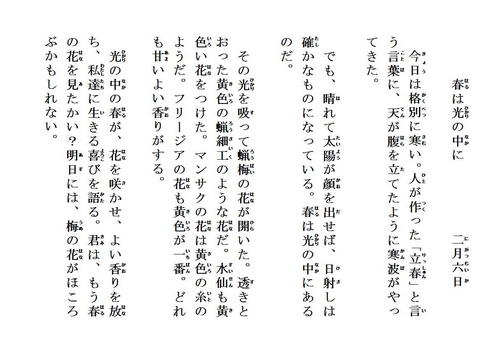 春は光の中に　二月六日
今日は格別に寒い。人が作った「立春」と言
う言葉に、天が腹を立てたように寒波がやっ
てきた。
でも、晴れて太陽が顔を出せば、日射しは
確かなものになっている。春は光の中にある
のだ。
その光を吸って蝋梅の花が開いた。透きと
おった黄色の蝋細工のような花だ。水仙も黄
色い花をつけた。マンサクの花は黄色の糸の
ようだ。フリージアの花も黄色が一番。どれ
も甘いよい香りがする。
光の中の春が、花を咲かせ、よい香りを放
ち、私達に生きる喜びを語る。君は、もう春
の花を見たかい？明日には、梅の花がほころ
ぶかもしれない。